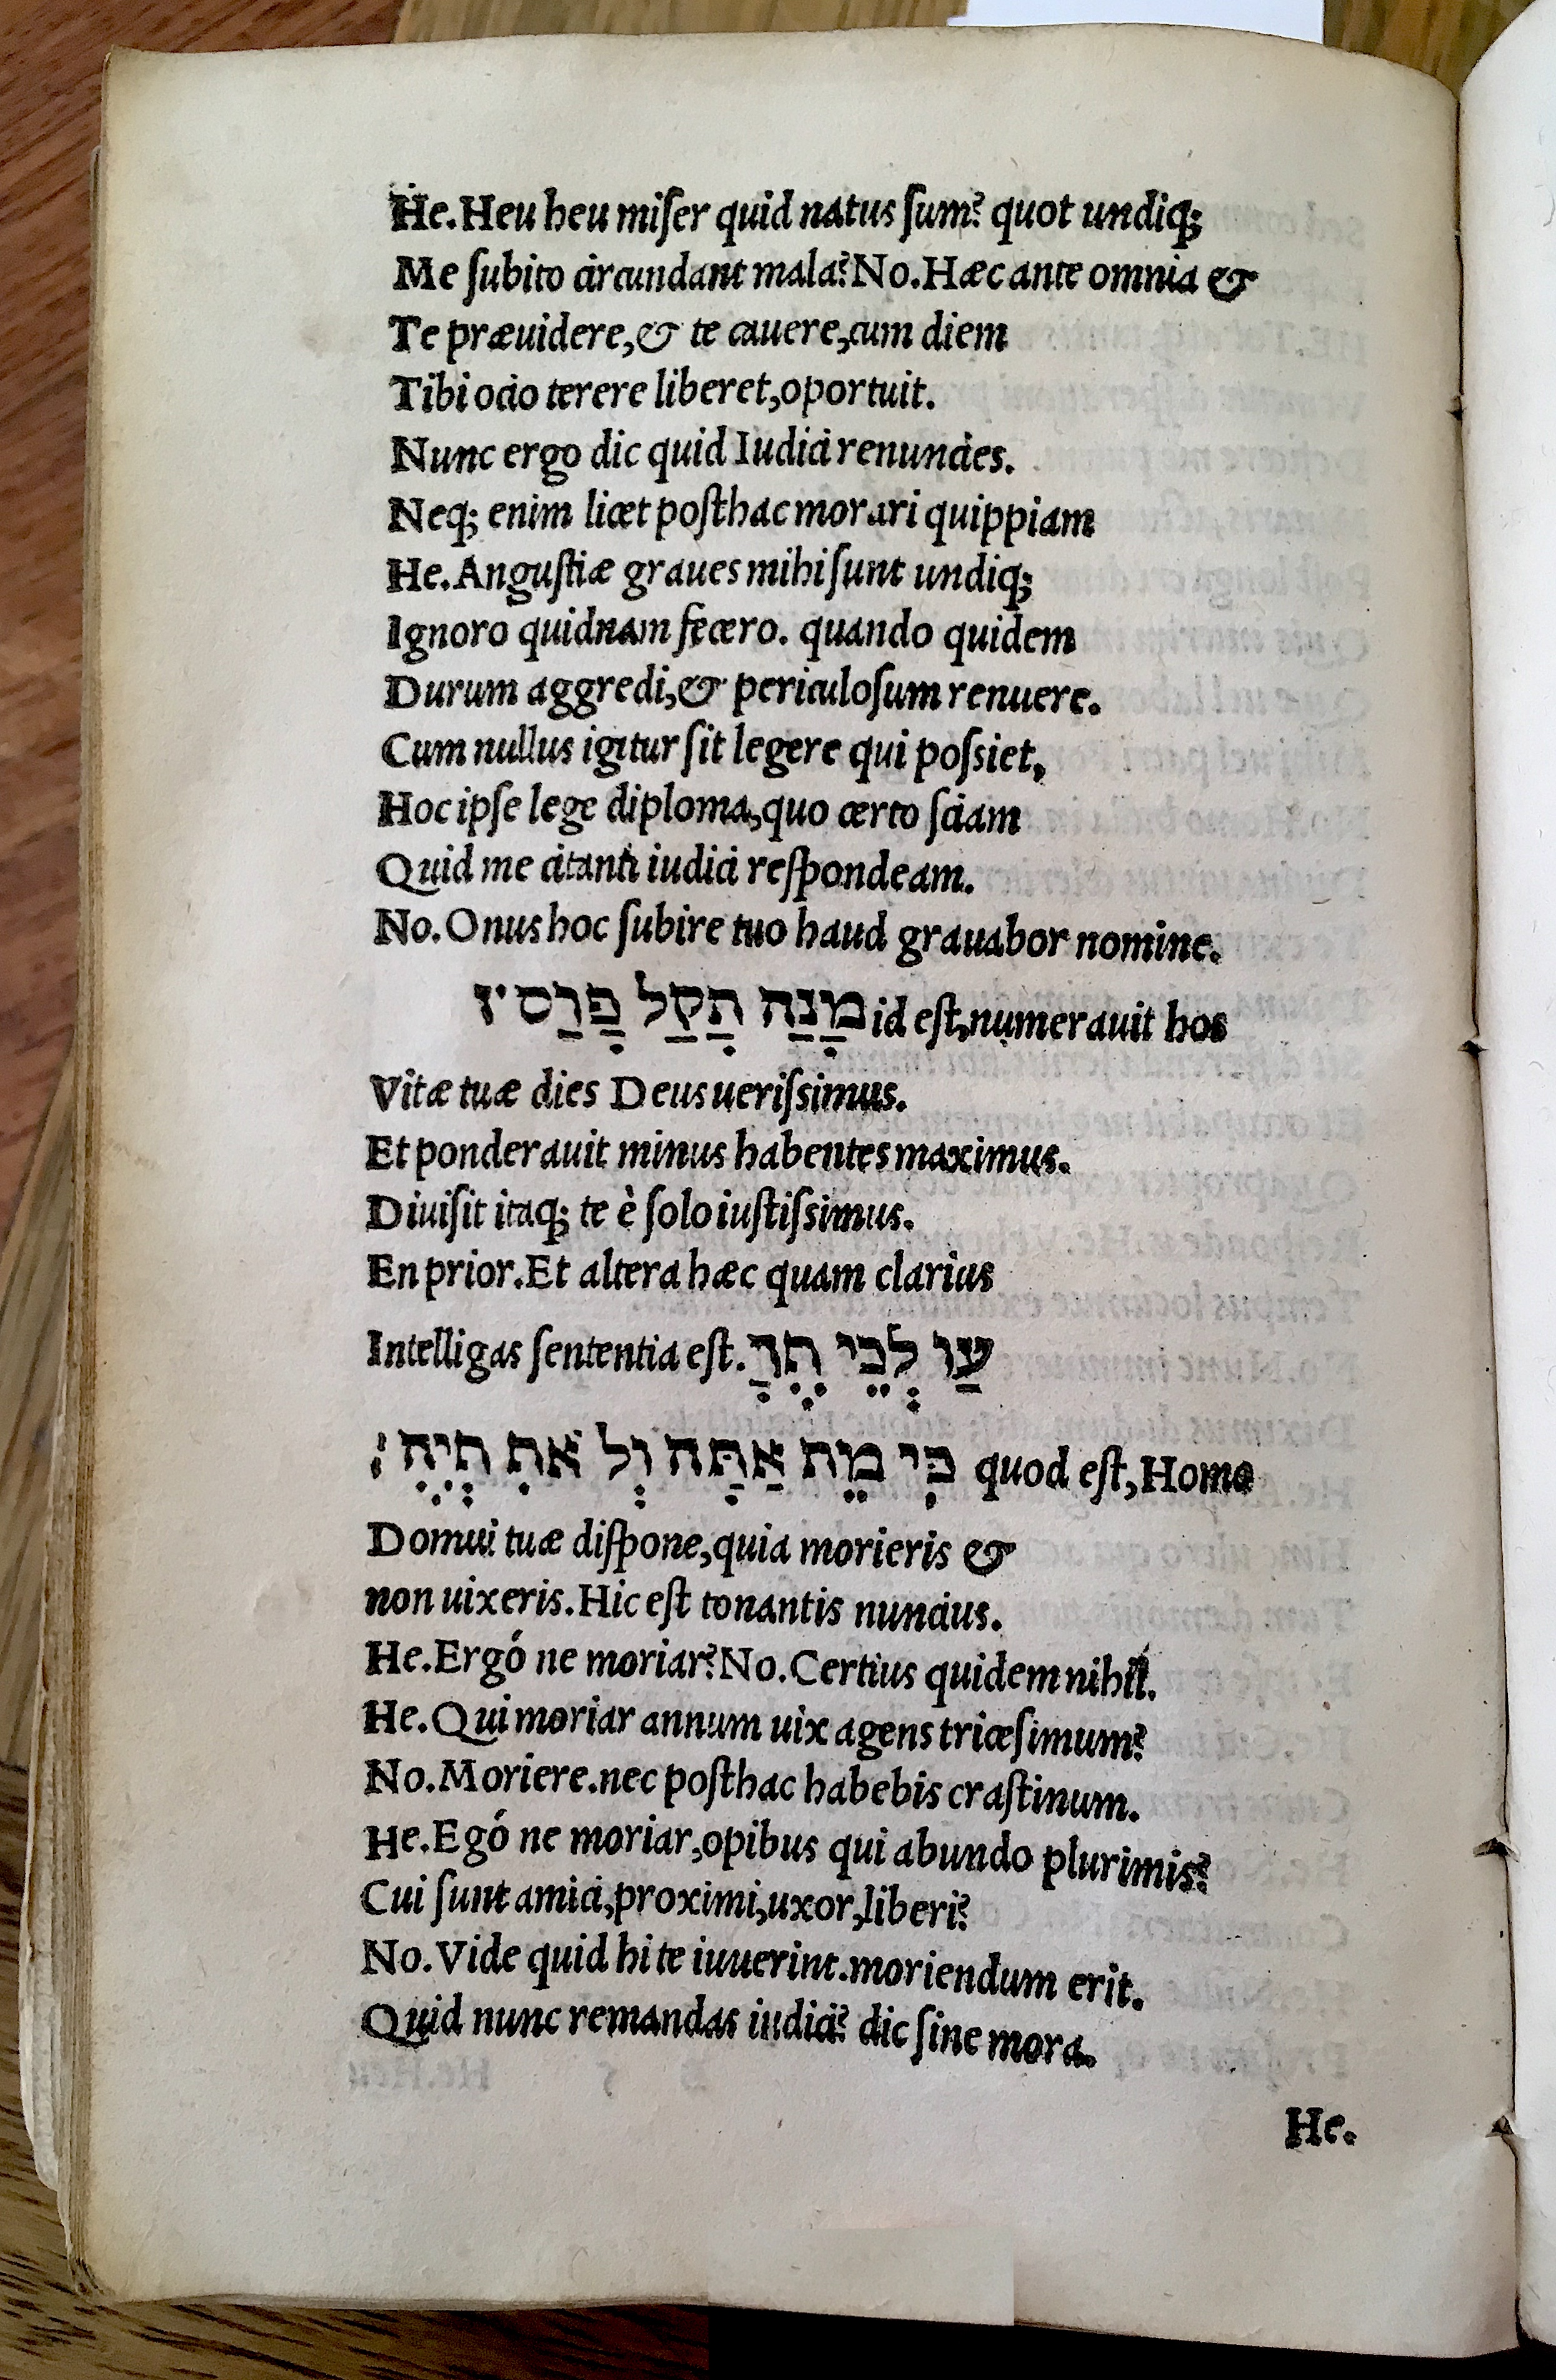 He. Heu heu miſer quid natus ſum? quot undiq;
Me ſubito circundant mala? No. Hæc ante omnia &
Te præuidere, & te cauere, cum diem
Tibi ocio terere liberet, oportuit.
Nunc ergo dic quid Iudici renuncies.
Neq; enim licet poſthac morari quippiam
He. Anguſtiæ graues mihi ſunt undiq;
Ignoro quidnam fecero. quando quidem
Durum aggredi, & periculoſum renuere.
Cum nullus igitur ſit legere qui poſsiet,
Hoc ipſe lege diploma, quo certo ſciam
Quid me citanti iudici reſpondeam.
No. Onus hoc ſubire tuo haud grauabor nomine.
מָנַה תָקַל פָרַס יז id eſt, numerauit hos
Vitæ tuæ dies Deus ueriſsimus.
Et ponderauit minus habentes maximus.
Diuiſit itaq; te è ſolo iuſtiſsimus.
En prior. Et altera hæc quam clarius
Intelligas ſententia eſt. עַו לְבֵי תֶךָ
כִּי מֵת אַתָּה וְל אֹתִ חְיֶה׃ quod eſt, Homo
Domui tuæ diſpone, quia morieris &
non uixeris. Hic eſt tonantis nuncius.
He. Ergó ne moriar? No. Certius quidem nihil.
He. Qui moriar annum uix agens triceſimum?
No. Moriere. nec poſthac habebis craſtinum.
He. Egó ne moriar, opibus qui abundo plurimis?
Cui ſunt amici, proximi, uxor, liberi?
No. Vide quid hi te iuuerint. moriendum erit.
Quid nunc remandas iudici? dic ſine mora.
He.